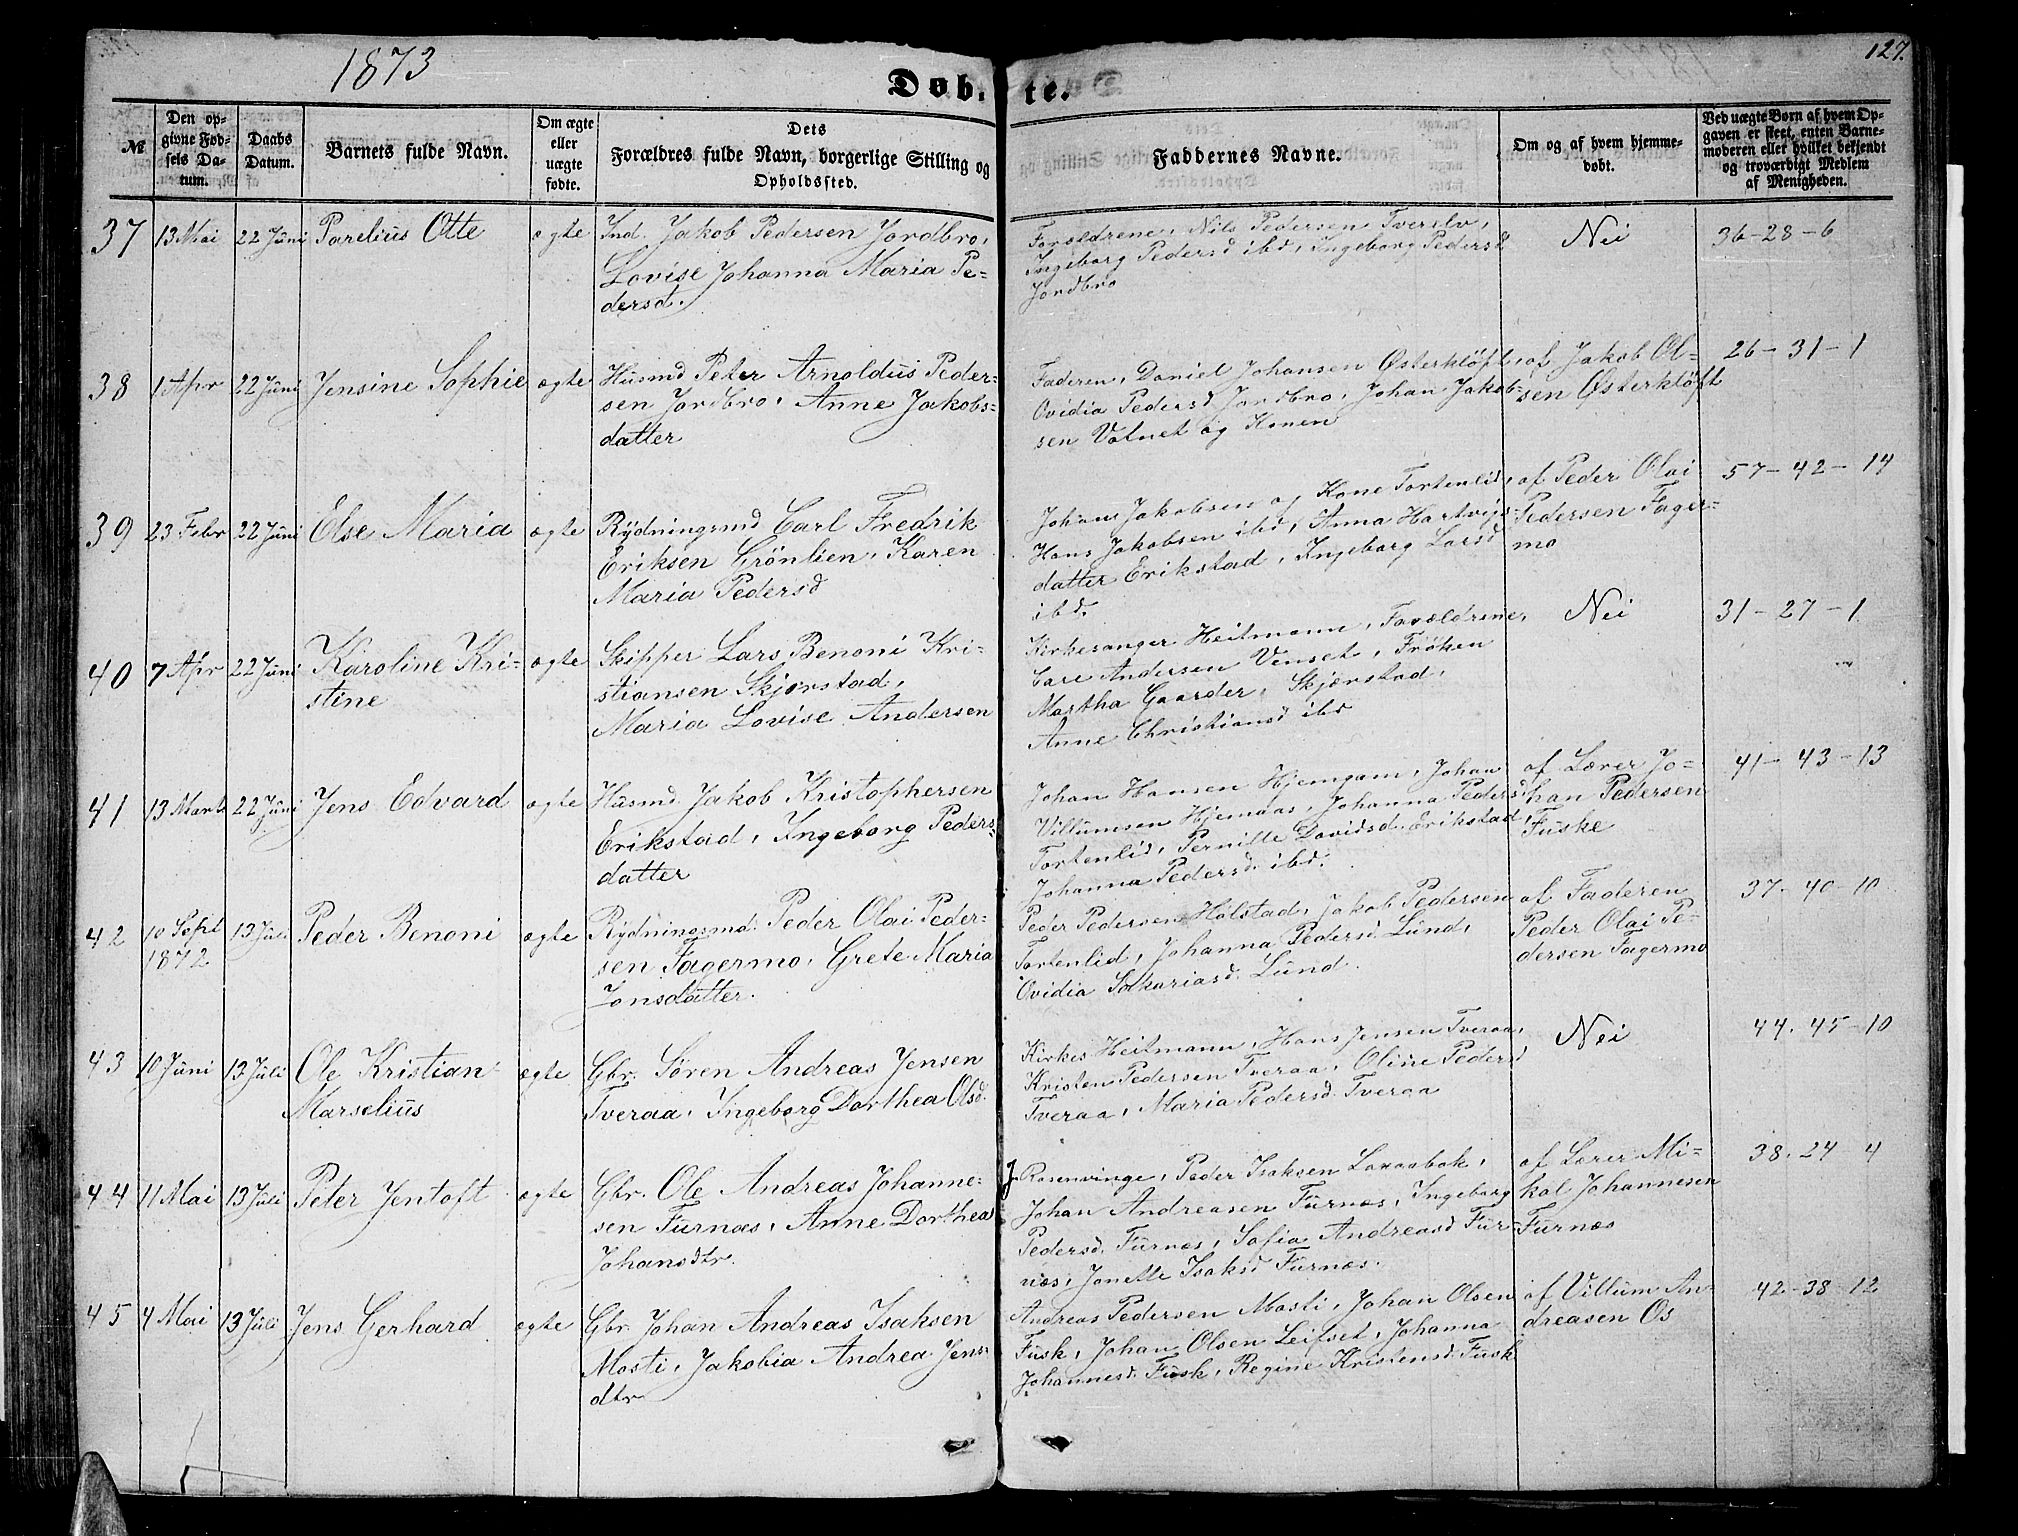 1873
127.
Døb.
te.
№
Den op-
givne Fød-
sels Da-
tum.
Daabs
Datum.
Barnets fulde Navn.
Om ægte
eller
uægte
fødte.
Dets
Forældres fulde Navn, borgerlige Stilling og
Opholdssted.
Faddernes Navne.
Om og af hvem hjemme-
døbt.
Ved uægte Børn af hvem Op-
gaven er skeet, enten Barne-
moderen eller hvilket bekjendt
og troværdigt Medlem
af Menigheden.
37
13 Mai
22 Juni
Parelius Otte
ægte
Ind. Jakob Pedersen Jordbro,
Lovise Johanna Maria Pe-
dersd.
Forældrene, Nils Pedersen Tverelv,
Ingeborg Pedersd ibd, Ingeborg Pedersd
Jordbro
Nei
36-28-6
38
1 Apr
22 Juni
Jensine Sophie
ægte
Husmd Peter Arnoldus Peder-
sen Jordbro, Anne Jakobs-
datter
Faderen, Daniel Johansen Østerkløft,
Ovidia Pedersd Jordbro, Johan Jakob-
sen Vatnet og Konen
af Jakob Ol-
sen Østerkløft
26-31-1
39
23 Febr
22 Juni
Else Maria
ægte
Rydningsmd Carl Fredrik
Eriksen Grönlien, Karen
Maria Pedersd
Johans Jakobsen og Kone Tortenlid,
Hans Jakobsen ibd, Anna Hartvigs-
datter Erikstad, Ingeborg Larsd
ibd.
af Peder Olai
Pedersen Fager-
mo
57-42-14
40
7 Apr
22 Juni
Karoline Kri-
stine
ægte
Skipper Lars Benoni Kri-
stiansen Skjerstad,
Maria Lovise Andersen
Kirkesanger Heitmann, Forældrene,
Care Andersen Venset, Fröken
Martha Gaarder, Skjærstad,
Anne Christiansd ibd
Nei
31-27-1
41
13 Marts
22 Juni
Jens Edvard
ægte
Husmd Jakob Kristophersen
Erikstad, Ingeborg Peders-
datter
Johan Hansen Hjemgam, Johan
Villumsen Hjemaas, Johanna Pedersd
Tortenlid, Pernille Davidsd Erikstad,
Johanna Pedersd. ibd.
af Lærer Jo-
han Pedersen
Fuske
41-43-13
42
10 Sept
1872
13 Juli
Peder Benoni
ægte
Rydningsmd. Peder Olai Peder-
sen Fagermo, Grete Maria
Jonsdatter.
Peder Pedersen Holstad, Jakob Pedersen
Tortenlid, Johanna Pedersd. Lund,
Ovidia Sakariasd. Lund.
af Faderen
Peder Olai Pe-
dersen Fagermo
37-40-10
43
10 Juni
13 Juli
Ole Kristian
Marselius
ægte
Gbr. Søren Andreas Jensen
Tveraa, Ingeborg Dorthea Olsd.
Kirkes Heitmann, Hans Jensen Tveraa,
Kristen Pedersen Tveraa, Oline Pedersd
Tveraa, Maria Pedersd. Tveraa
Nei
44-45-10
44
11 Mai
13 Juli
Peter Jentoft
ægte
Gbr. Ole Andreas Johanne-
sen Furnæs, Anne Dorthea
Johansdtr.
J Rosenvinge, Peder Isaksen Lavaabak,
Johan Andreasen Furnæs, Ingeborg
Pedersd. Furnæs, Sofia Andreasd Fur-
næs, Jonette Isaksd Furnæs.
af Lærer Mi-
kal Johannesen
Furnæs
38-24-4
45
4 Mai
13 Juli
Jens Gerhard
ægte
Gbr. Johan Andreas Isaksen
Mosti, Jakobia Andrea Jens-
dtr
Andreas Pedersen Mosti, Johan Olsen
Fusk, Johan Olsen Leifset, Johanna
Johannesd. Fusk, Regine Kristensd. Fusk
af Villum An-
dreasen Os
42-38-12